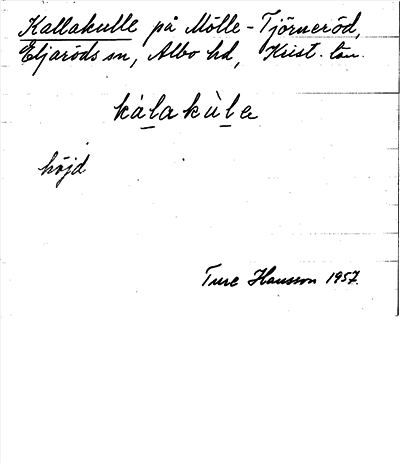 Kallakulle på Mölle-Tjörneröd,
Eljaröds sn, Albo hd, Krist. län.
kàl̲akùl̲e
höjd
Ture Hansson 1957.